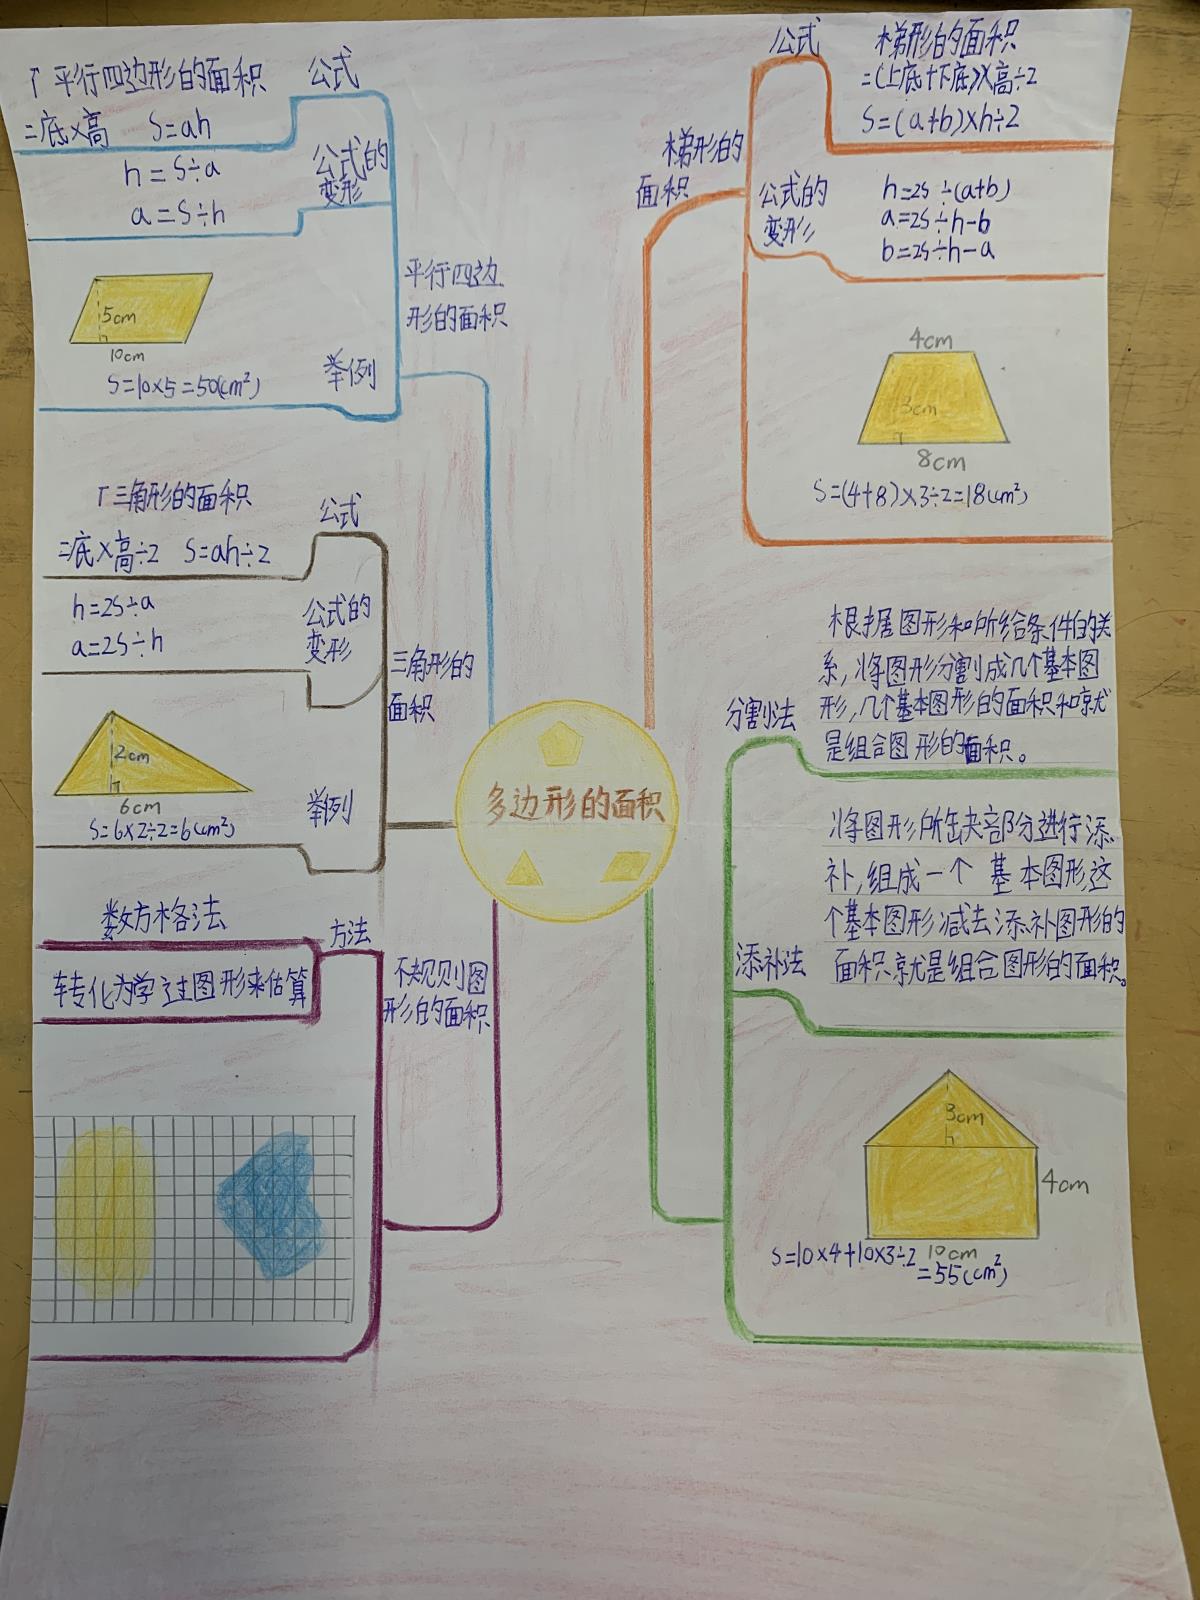 多边形的面积
平行四边
形的面积
公式
「平行四边形的面积
=底×高 S=ah
公式的
变形
h=S÷a
a=S÷h
举例
5cm
10cm
S=10×5=50(cm²)
三角形的
面积
公式
「三角形的面积
=底×高÷2 S=ah÷2
公式的
变形
h=2S÷a
a=2S÷h
举例
2cm
6cm
S=6×2÷2=6(cm²)
不规则图
形的面积
方法
数方格法
转化为学过图形来估算
梯形的
面积
公式
梯形的面积
=(上底+下底)×高÷2
S=(a+b)×h÷2
公式的
变形
h=2S÷(a+b)
a=2S÷h-b
b=2S÷h-a
4cm
3cm
8cm
S=(4+8)×3÷2=18(cm²)
分割法
根据图形和所给条件的关
系,将图形分割成几个基本图
形,几个基本图形的面积和就
是组合图形的面积。
添补法
将图形所缺部分进行添
补,组成一个基本图形,这
个基本图形减去添补图形的
面积就是组合图形的面积。
3cm
4cm
10cm
S=10×4+10×3÷2
=55(cm²)